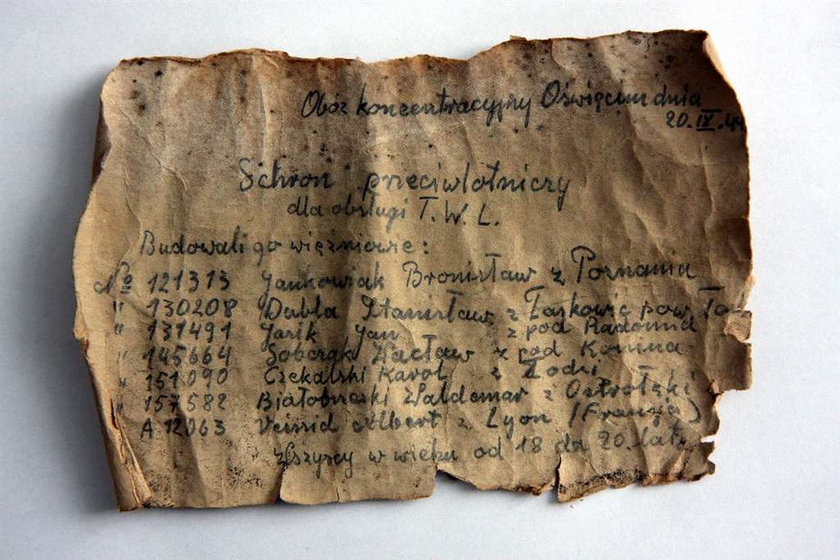 Obóz koncentracyjny Oświęcim dnia
20.IX.44
Schron przeciwlotniczy
dla obsługi T.W.L.
Budowali go więźniowie:
No 121313 Jankowiak Bronisław z Poznania
" 130208 Dubla Stanisław z Łaskowic pow. Ta
" 131491 Jasik Jan z pod Radomia
" 145664 Sobczak Wacław z pod Konina
" 151090 Czekalski Karol z Łodzi
" 157582 Białobrzeski Waldemar z Ostrołęki
A 12063 Veissid Albert z Lyon (Francja)
Wszyscy w wieku od 18 do 20 lat